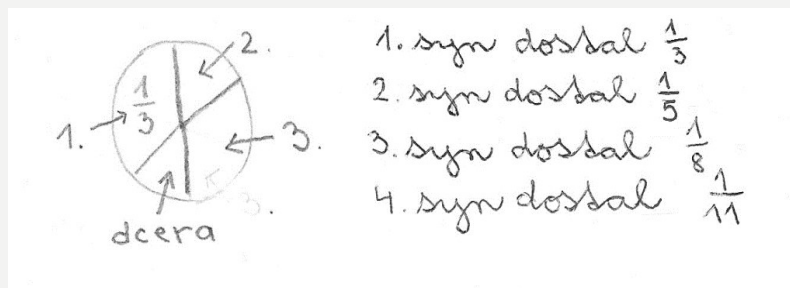 2.
1/3
1.
3.
3.
dcera
1. syn dostal 1/3
2. syn dostal 1/5
3. syn dostal 1/8
4. syn dostal 1/11